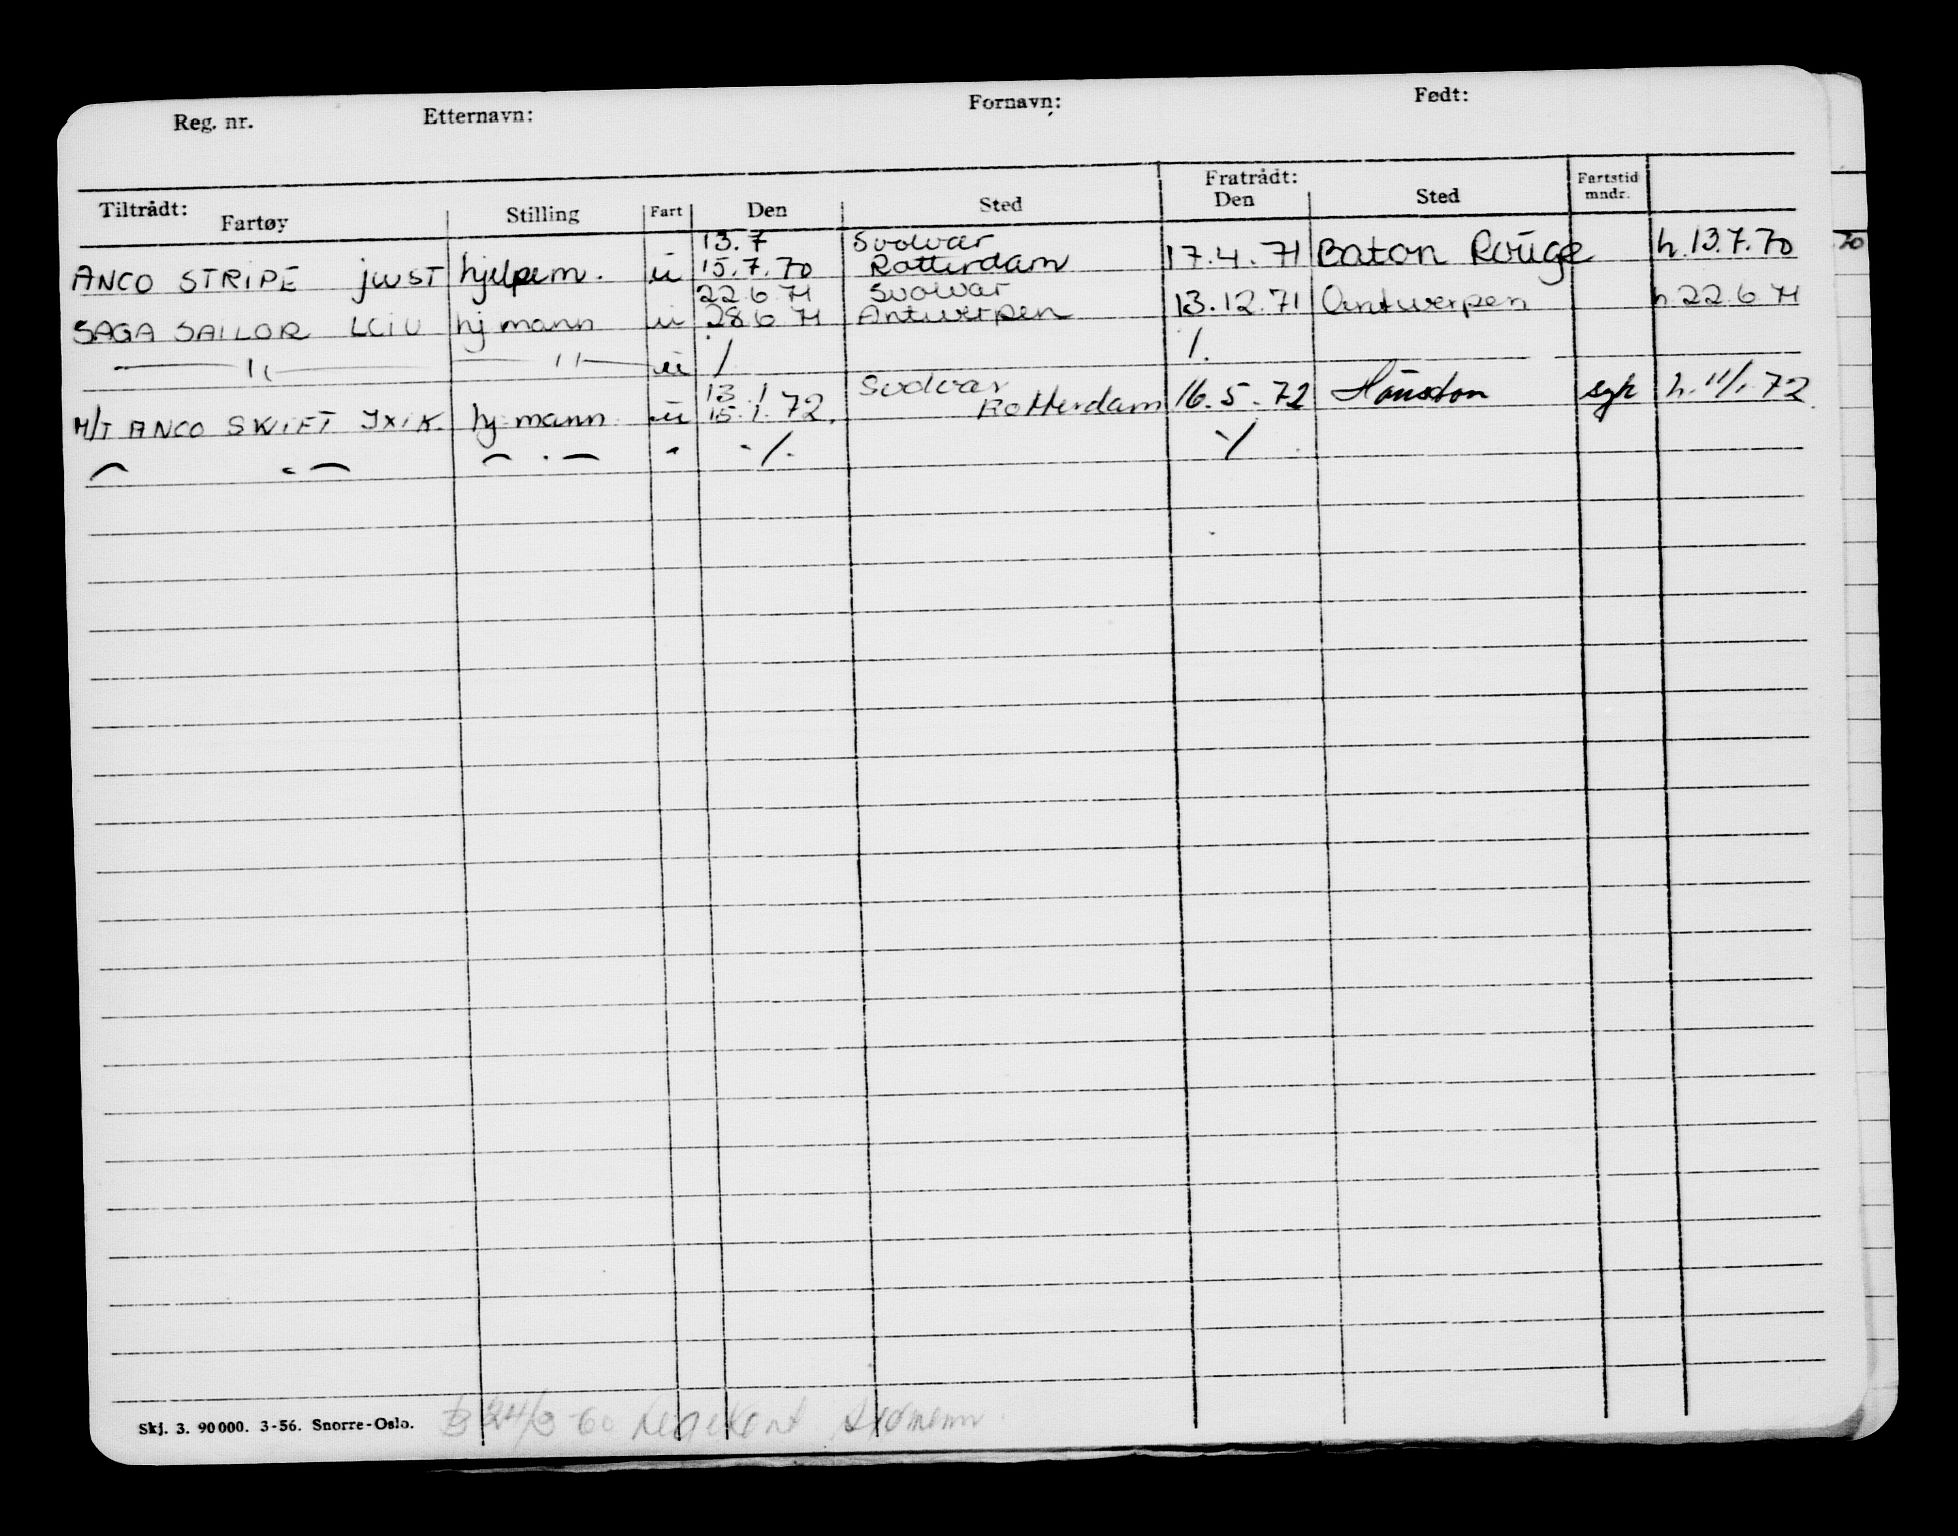 Reg. nr. Etternavn: Fornavn: Født:
Tiltrådt: Fratrådt: Fartstid
Fartøy Stilling Fart Den Sted Den Sted mndr.
13.7 Svolvær
ANCO STRIPE JWST hjelpem. u 15.7.70 Rotterdam 17.4.71 Baton Rouge h.13.7.70
22 6 71 Svolvær
SAGA SAILOR LCIU hj mann u 28 6 71 Antwerpen 13.12.71 Antwerpen h 22.6 71
—— " —— —— " —— u / /.
13.1 Svolvær
M/T ANCO SWIFT JXIK hj. mann u 15.1.72. Rotterdam 16.5.72 Houston syk h. 11/1.72
— " — — " — " -/. -/.
70
Skj. 3. 90000. 3-56. Snorre-Oslo.
60 sjømenn